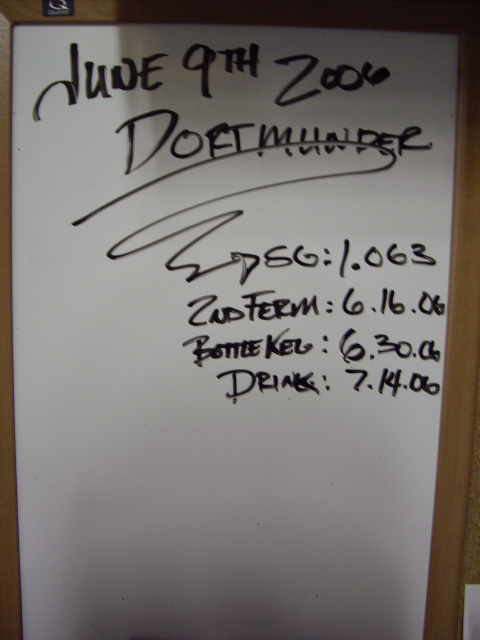 JUNE 9TH 2006
DORTMUNDER
SG: 1.063
2ND FERM: 6.16.06
BOTTLE KEG: 6.30.06
DRINK: 7.14.06